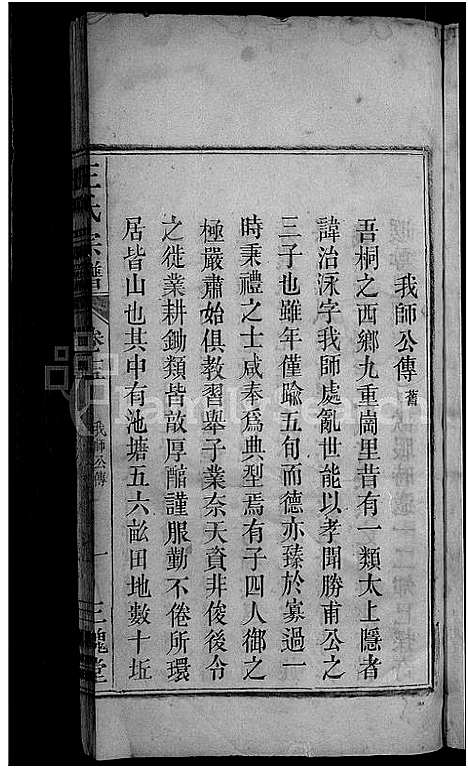 我師公傳 舊
吾桐之西鄉九重崗里昔有一類太上隱者
諱治泳字我師處亂世能以孝聞勝甫公之
三子也雖年僅踰五旬而德亦臻於寡過一
時秉禮之士咸奉爲典型焉有子四人御之
極嚴肅始俱教習舉子業奈天資非俊後令
之徙業耕鋤類皆敵厚醕謹服勤不倦所環
居皆山也其中有池塘五六畝田地數十坵
王氏宗譜
卷
我師公傳
一
三槐堂